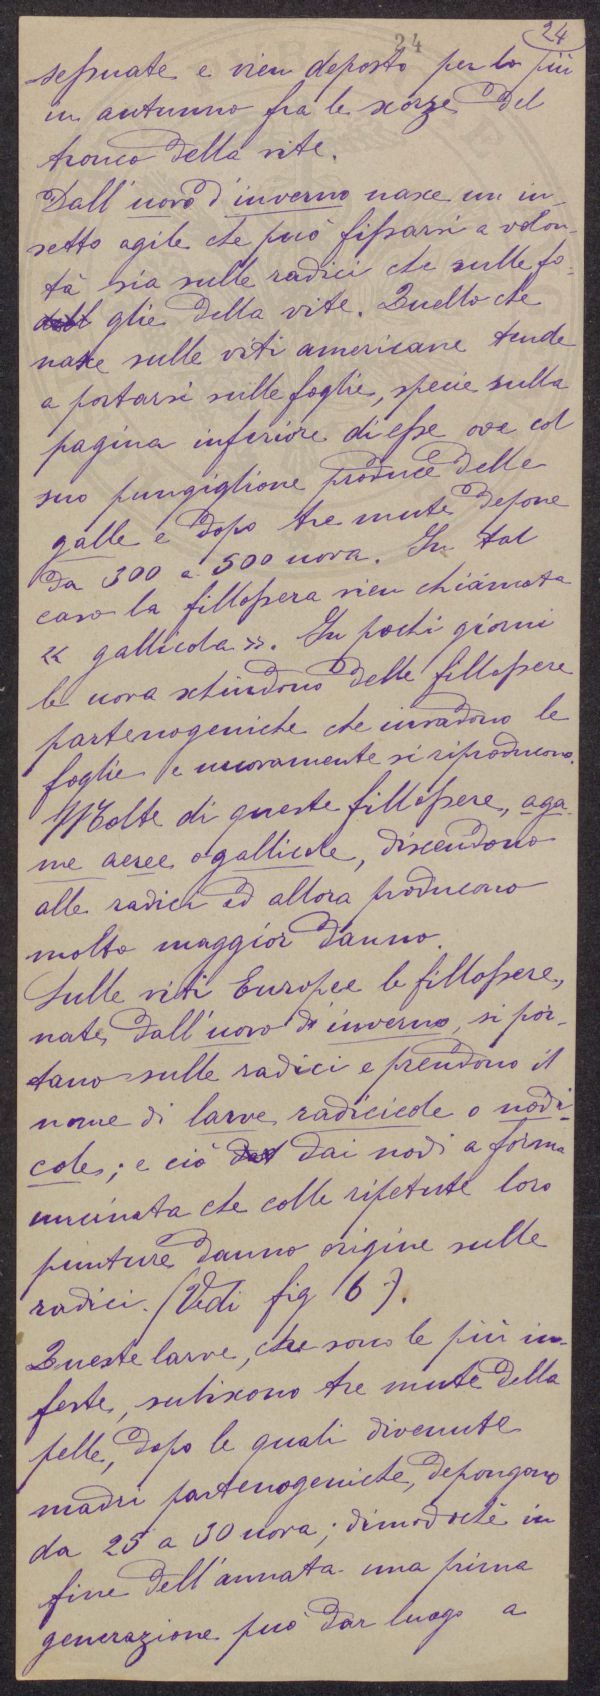 24 24
sessuate e vien deposto per lo più
in autunno fra le scorze del
tronco della vite.
Dall'uovo d'inverno nasce un in-
setto agile che può fissarsi a volon-
tà sia sulle radici che sulle fo-
glie della vite. Quello che
nasce sulle viti americane tende
a portarsi sulle foglie, specie sulla
pagina inferiore di esse ove col
suo pungiglione produce delle
galle e dopo tre mute depone
da 300 a 500 uova. In tal
caso la fillossera vien chiamata
« gallicola ». In pochi giorni
le uova schiudono delle fillossere
partenogeniche che invadono le
foglie e nuovamente si riproducono.
Molte di queste fillossere, aga-
me aeree o gallicole, discendono
alle radici ed allora producono
molto maggior danno.
Sulle viti Europee le fillossere,
nate dall'uovo d'inverno, si por-
tano sulle radici e prendono il
nome di larve radicicole o nodi-
cole; e ciò dai nodi a forma
uncinata che colle ripetute loro
punture danno origine sulle
radici. (Vedi fig 6).
Queste larve, che sono le più in-
feste, subiscono tre mute della
pelle, dopo le quali divenute
madri partenogeniche, depongono
da 25 a 30 uova; dimodochè in
fine dell'annata una prima
generazione può dar luogo a